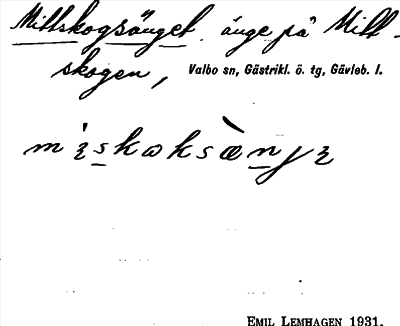 Mittskogsänget. änge på Mitt-
skogen, Valbo sn, Gästrikl. ö. tg, Gävleb. l.
EMIL LEMHAGEN 1931.